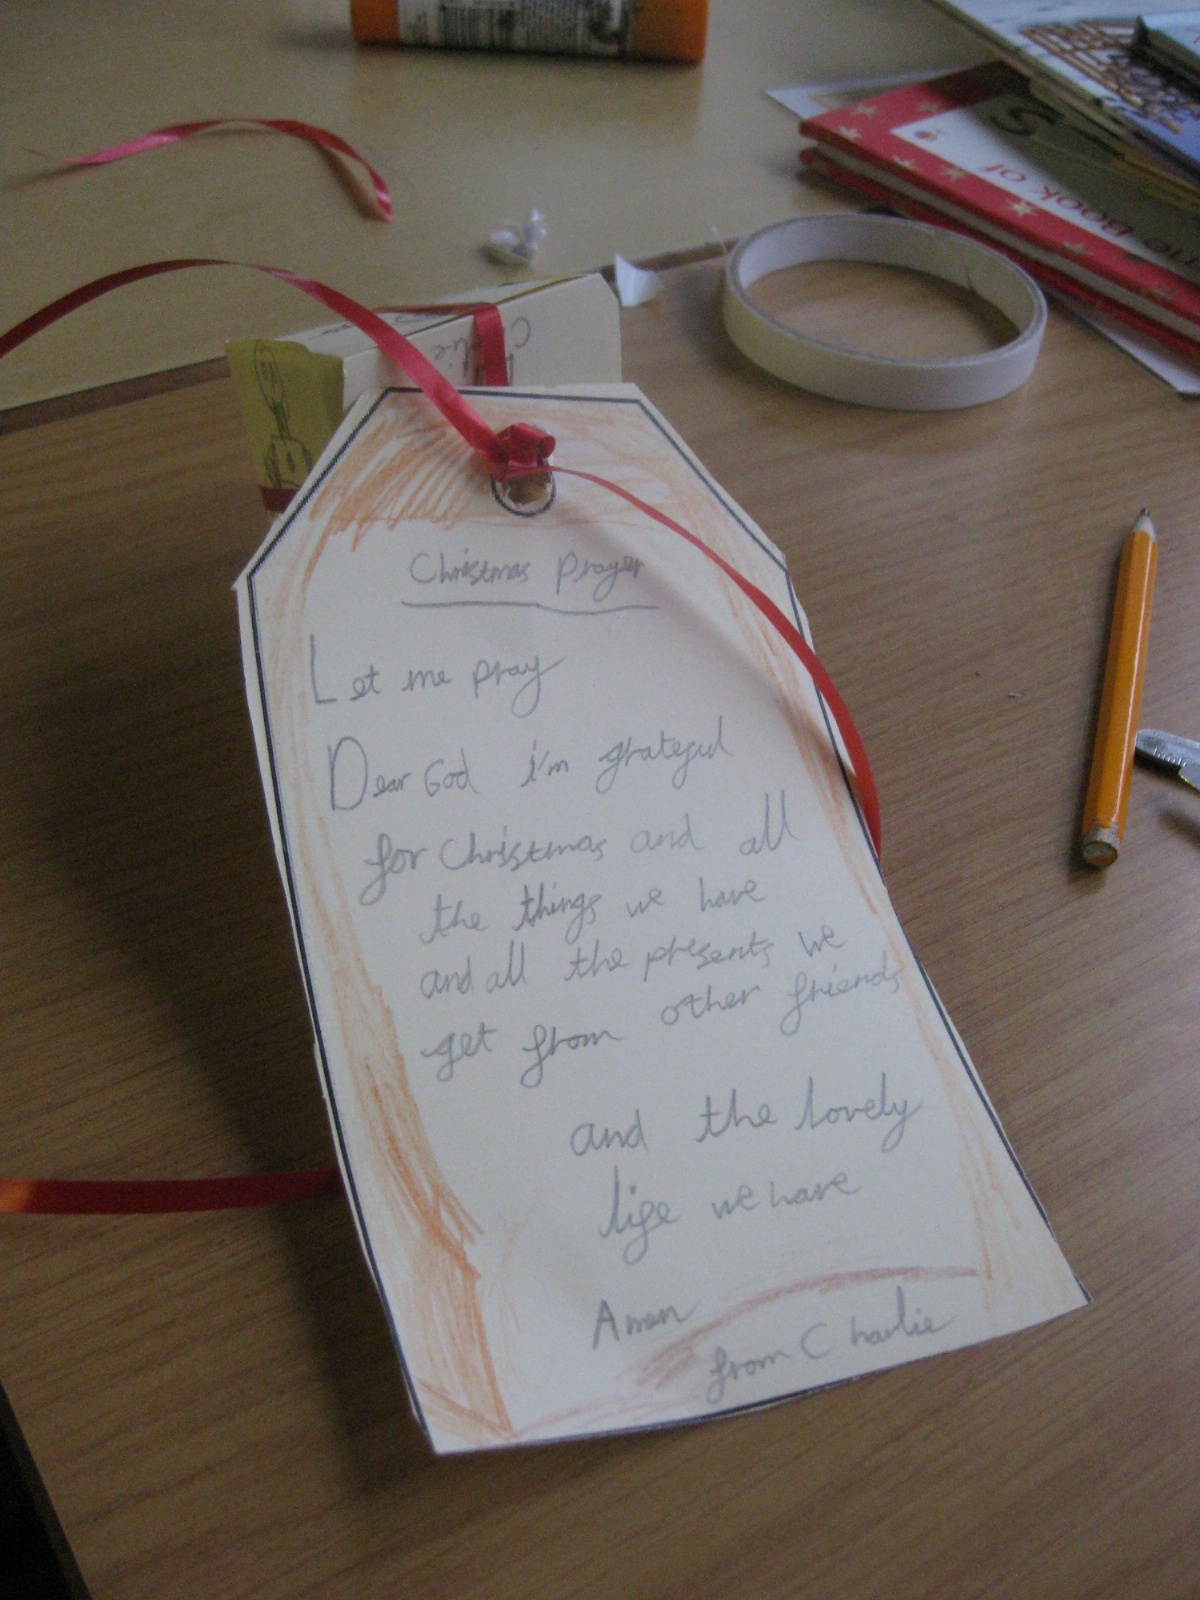 Christmas Prayer
Let me pray
Dear God i'm grateful
for Christmas and all
the things we have
and all the presents we
get from other friends
and the lovely
life we have
Amen
from Charlie
Book of